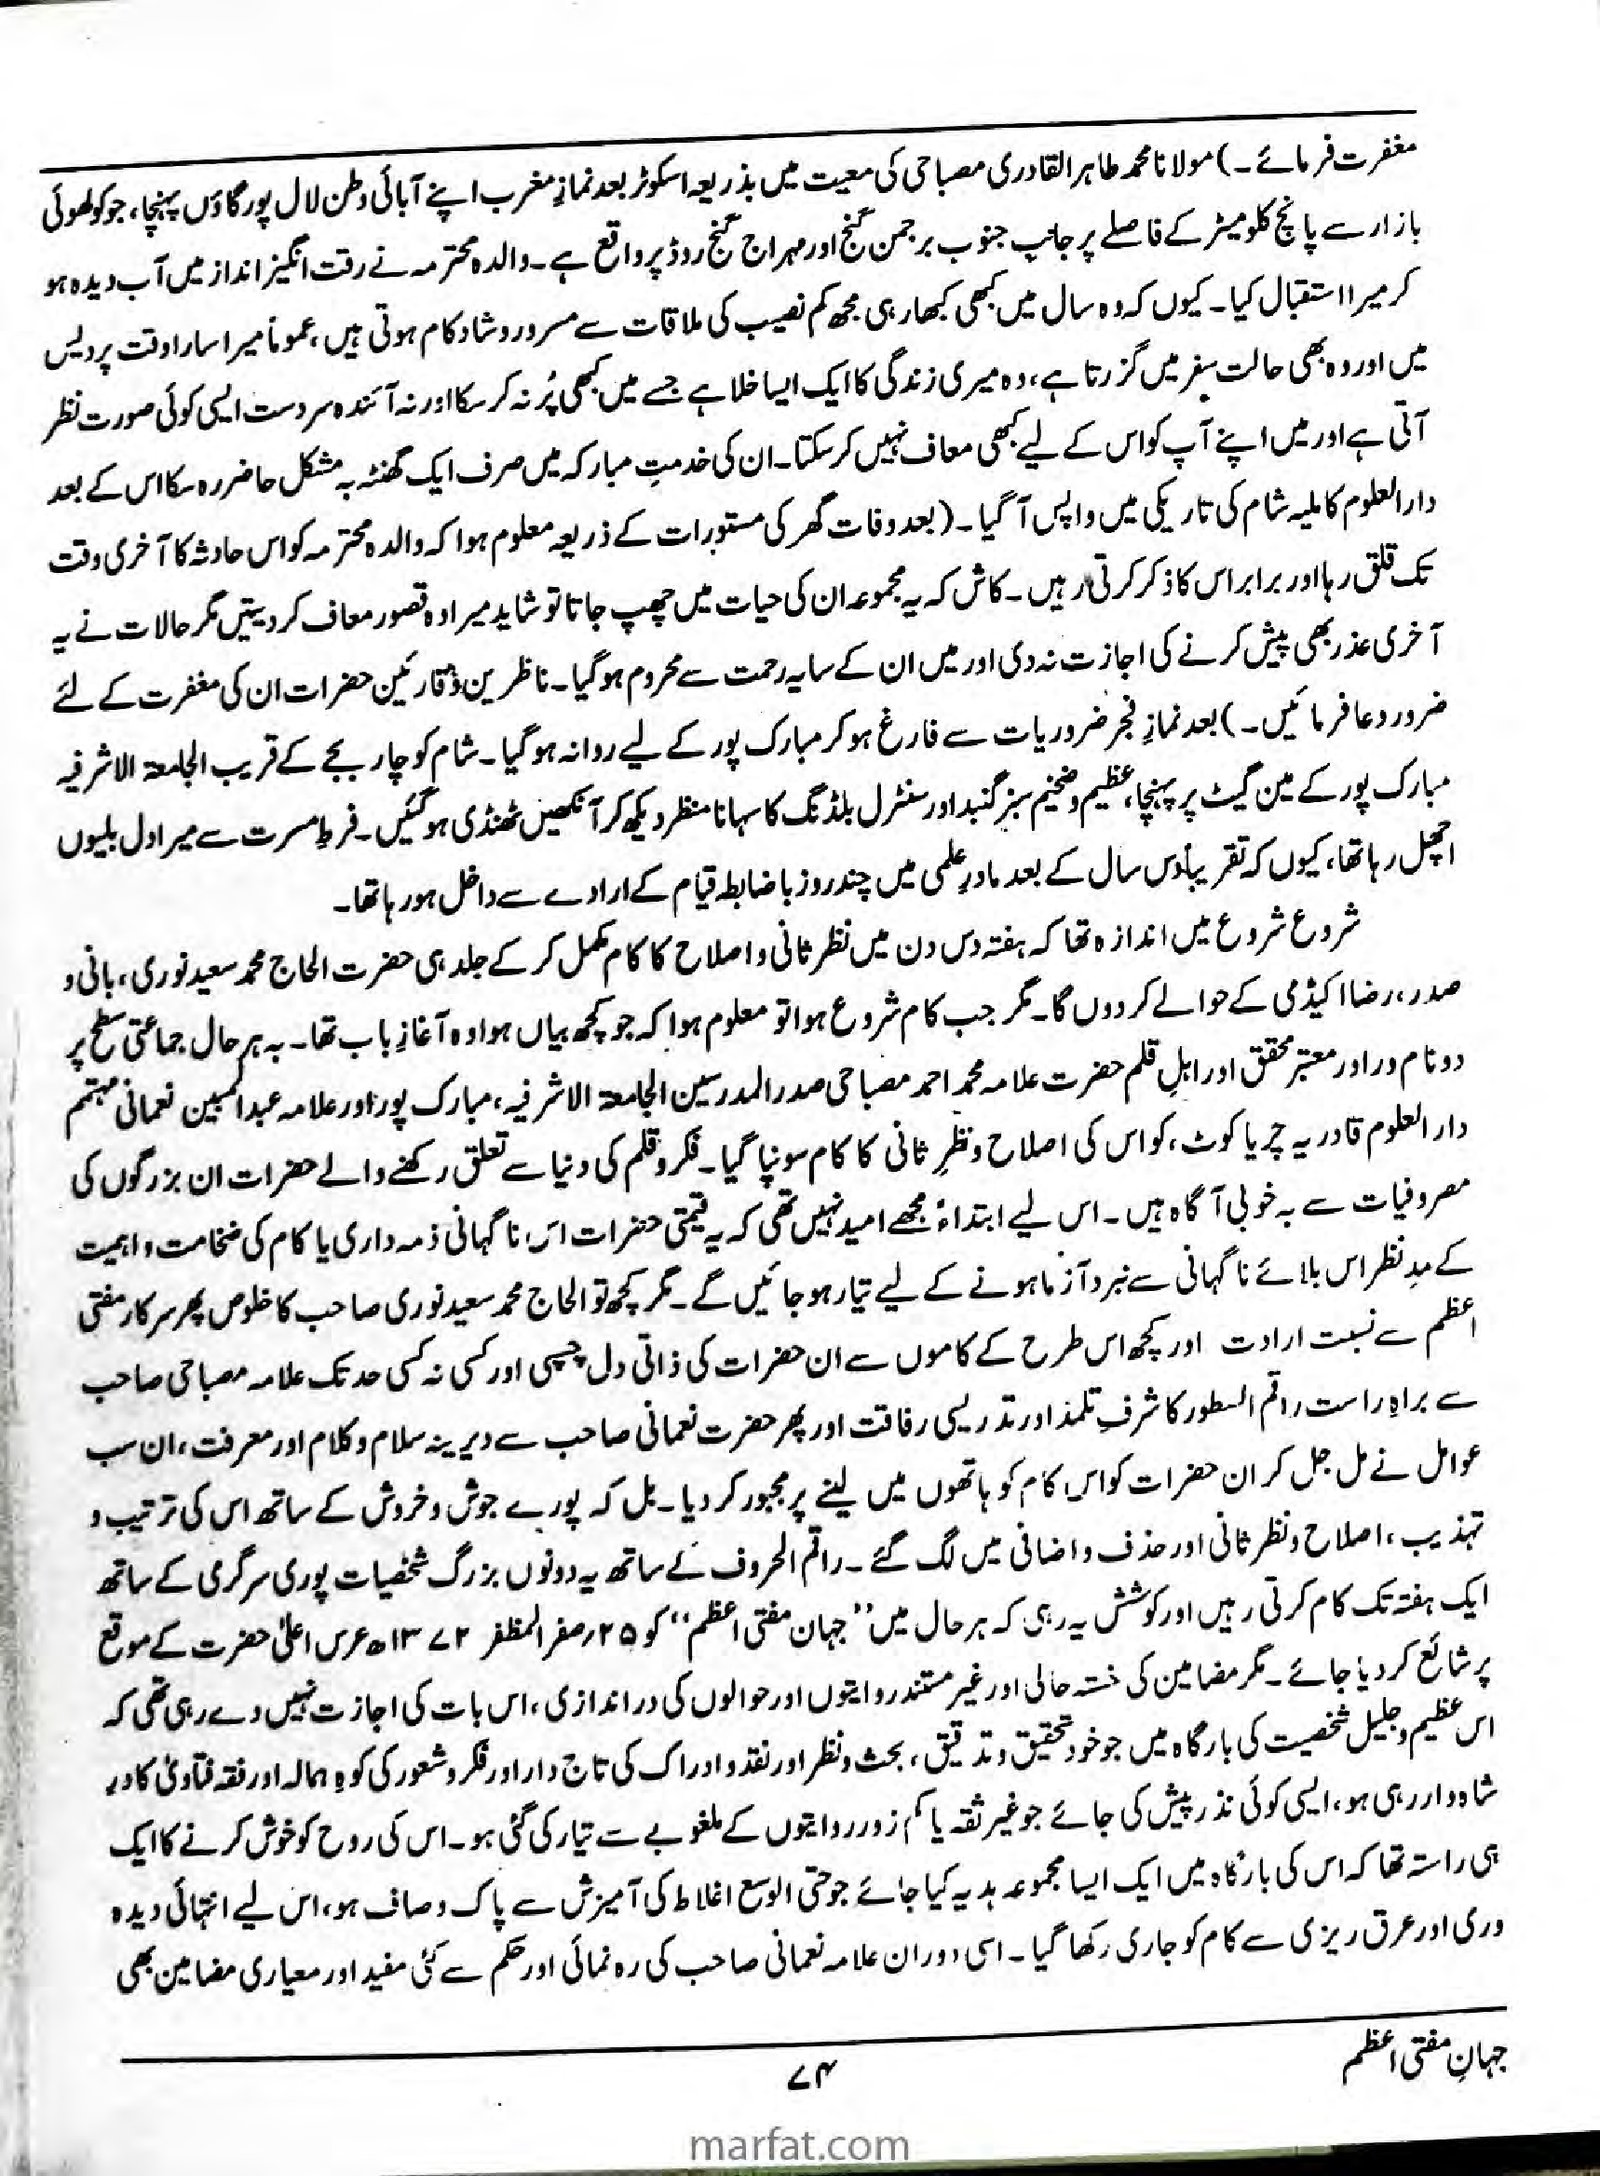 مغفرت فرمائے۔) مولانا محمد طاہر القادری مصباحی کی معیت میں بذریعہ اسکوٹر بعد نمازِ مغرب اپنے آبائی وطن لال پور گاؤں پہنچا، جو کولھوئی
بازار سے پانچ کلومیٹر کے فاصلے پر جانب جنوب برجمن گنج اور مہراج گنج روڈ پر واقع ہے۔ والدہ محترمہ نے رقت انگیز انداز میں آب دیدہ ہو
کر میرا استقبال کیا۔ کیوں کہ وہ سال میں کبھی کبھار ہی مجھ کم نصیب کی ملاقات سے مسرور و شادکام ہوتی ہیں، عموماً میرا سارا وقت پردیس
میں اور وہ بھی حالت سفر میں گزرتا ہے، وہ میری زندگی کا ایک ایسا خلا ہے جسے میں کبھی پُر نہ کرسکا اور نہ آئندہ سردست ایسی کوئی صورت نظر
آتی ہے اور میں اپنے آپ کو اس کے لیے کبھی معاف نہیں کرسکتا۔ ان کی خدمتِ مبارکہ میں صرف ایک گھنٹہ بہ مشکل حاضر رہ سکا اس کے بعد
دارالعلوم کاملیہ شام کی تاریکی میں واپس آگیا۔ (بعد وفات گھر کی مستورات کے ذریعہ معلوم ہوا کہ والدہ محترمہ کو اس حادثہ کا آخری وقت
تک قلق رہا اور برابر اس کا ذکر کرتی رہیں۔ کاش کہ یہ مجموعہ ان کی حیات میں چھپ جاتا تو شاید میرا وہ قصور معاف کردیتیں مگر حالات نے یہ
آخری عذر بھی پیش کرنے کی اجازت نہ دی اور میں ان کے سایہ رحمت سے محروم ہوگیا۔ ناظرین و قارئین حضرات ان کی مغفرت کے لئے
ضرور دعا فرمائیں۔) بعد نمازِ فجر ضروریات سے فارغ ہوکر مبارک پور کے لیے روانہ ہوگیا۔ شام کو چار بجے کے قریب الجامعۃ الاشرفیہ
مبارک پور کے مین گیٹ پر پہنچا، عظیم و ضخیم سبز گنبد اور سنٹرل بلڈنگ کا سہانا منظر دیکھ کر آنکھیں ٹھنڈی ہوگئیں۔ فرطِ مسرت سے میرا دل بلیوں
اچھل رہا تھا، کیوں کہ تقریباً دس سال کے بعد مادرِ علمی میں چند روز باضابطہ قیام کے ارادے سے داخل ہو رہا تھا۔
شروع شروع میں اندازہ تھا کہ ہفتہ دس دن میں نظر ثانی و اصلاح کا کام مکمل کر کے جلد ہی حضرت الحاج محمد سعید نوری، بانی و
صدر، رضا اکیڈمی کے حوالے کردوں گا۔ مگر جب کام شروع ہوا تو معلوم ہوا کہ جو کچھ بیاں ہوا وہ آغازِ باب تھا۔ بہ ہر حال جماعتی سطح پر
دو نام ور اور معتبر محقق اور اہلِ قلم حضرت علامہ محمد احمد مصباحی صدر المدرسین الجامعۃ الاشرفیہ، مبارک پور اور علامہ عبدالمبین نعمانی مہتمم
دارالعلوم قادریہ چریا کوٹ، کو اس کی اصلاح و نظرِ ثانی کا کام سونپا گیا۔ فکر و قلم کی دنیا سے تعلق رکھنے والے حضرات ان بزرگوں کی
مصروفیات سے بہ خوبی آگاہ ہیں۔ اس لیے ابتداءً مجھے امید نہیں تھی کہ یہ قیمتی حضرات اس ناگہانی ذمہ داری یا کام کی ضخامت و اہمیت
کے مدِ نظر اس بلائے ناگہانی سے نبرد آزما ہونے کے لیے تیار ہوجائیں گے۔ مگر کچھ تو الحاج محمد سعید نوری صاحب کا خلوص پھر سرکار مفتی
اعظم سے نسبت ارادت اور کچھ اس طرح کے کاموں سے ان حضرات کی ذاتی دل چسپی اور کسی نہ کسی حد تک علامہ مصباحی صاحب
سے براہِ راست راقم السطور کا شرفِ تلمذ اور تدریسی رفاقت اور پھر حضرت نعمانی صاحب سے دیرینہ سلام و کلام اور معرفت، ان سب
عوامل نے مل جل کر ان حضرات کو اس کام کو ہاتھوں میں لینے پر مجبور کردیا۔ بل کہ پورے جوش و خروش کے ساتھ اس کی ترتیب و
تہذیب، اصلاح و نظر ثانی اور حذف و اضافی میں لگ گئے۔ راقم الحروف کے ساتھ یہ دونوں بزرگ شخصیات پوری سرگرمی کے ساتھ
ایک ہفتہ تک کام کرتی رہیں اور کوشش یہ رہی کہ ہر حال میں ”جہان مفتی اعظم“ کو ۲۵؍صفر المظفر ۱۳۷۲ھ عرس اعلیٰ حضرت کے موقع
پر شائع کردیا جائے۔ مگر مضامین کی خستہ حالی اور غیر مستند روایتوں اور حوالوں کی دراندازی، اس بات کی اجازت نہیں دے رہی تھی کہ
اس عظیم و جلیل شخصیت کی بارگاہ میں جو خود تحقیق و تدقیق، بحث و نظر اور نقد و ادراک کی تاج دار اور فکر و شعور کی کوہِ ہمالہ اور فقہ فتاویٰ کا درِ
شاہ وار رہی ہو، ایسی کوئی نذر پیش کی جائے جو غیر ثقہ یا کم زور روایتوں کے ملغوبے سے تیار کی گئی ہو۔ اس کی روح کو خوش کرنے کا ایک
ہی راستہ تھا کہ اس کی بارگاہ میں ایک ایسا مجموعہ ہدیہ کیا جائے جو حتی الوسع اغلاط کی آمیزش سے پاک و صاف ہو، اس لیے انتہائی دیدہ
وری اور عرق ریزی سے کام کو جاری رکھا گیا۔ اسی دوران علامہ نعمانی صاحب کی رہ نمائی اور حکم سے کئی مفید اور معیاری مضامین بھی
جہانِ مفتی اعظم
۷۴
marfat.com